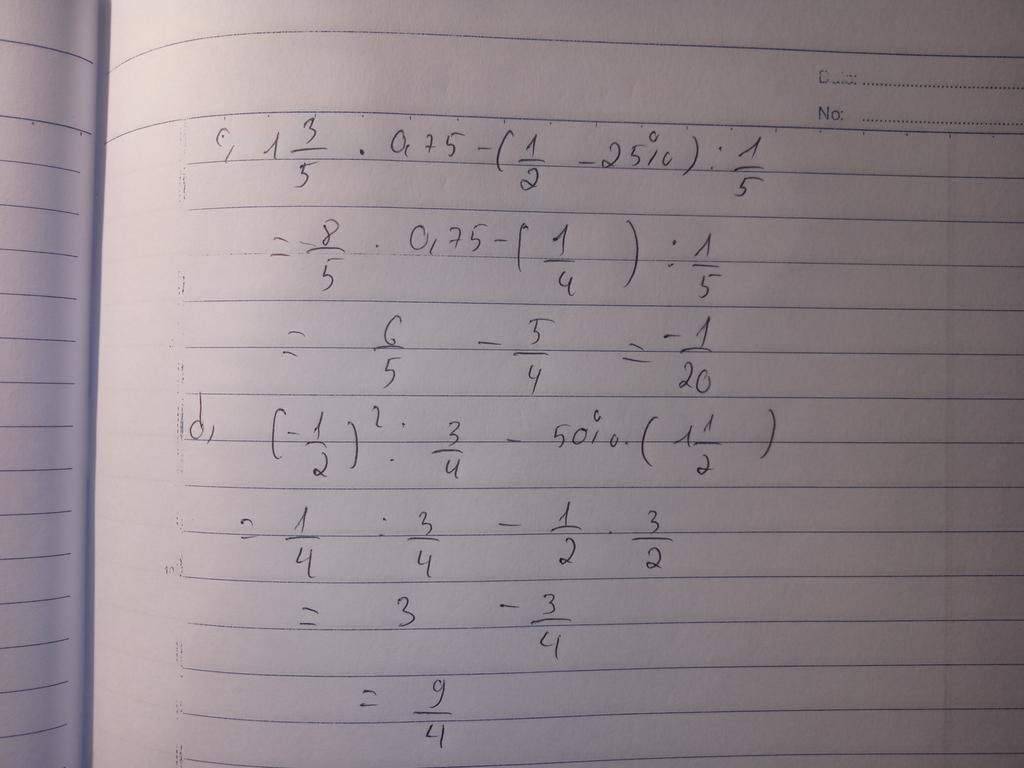 Date:
No:
c, 1 3/5 . 0,75 - (1/2 - 25%) : 1/5
= 8/5 . 0,75 - (1/4) : 1/5
= 6/5 - 5/4 = -1/20
d, (-1/2)² : 3/4 - 50%. (1 1/2)
= 1/4 : 3/4 - 1/2 . 3/2
= 3 - 3/4
= 9/4